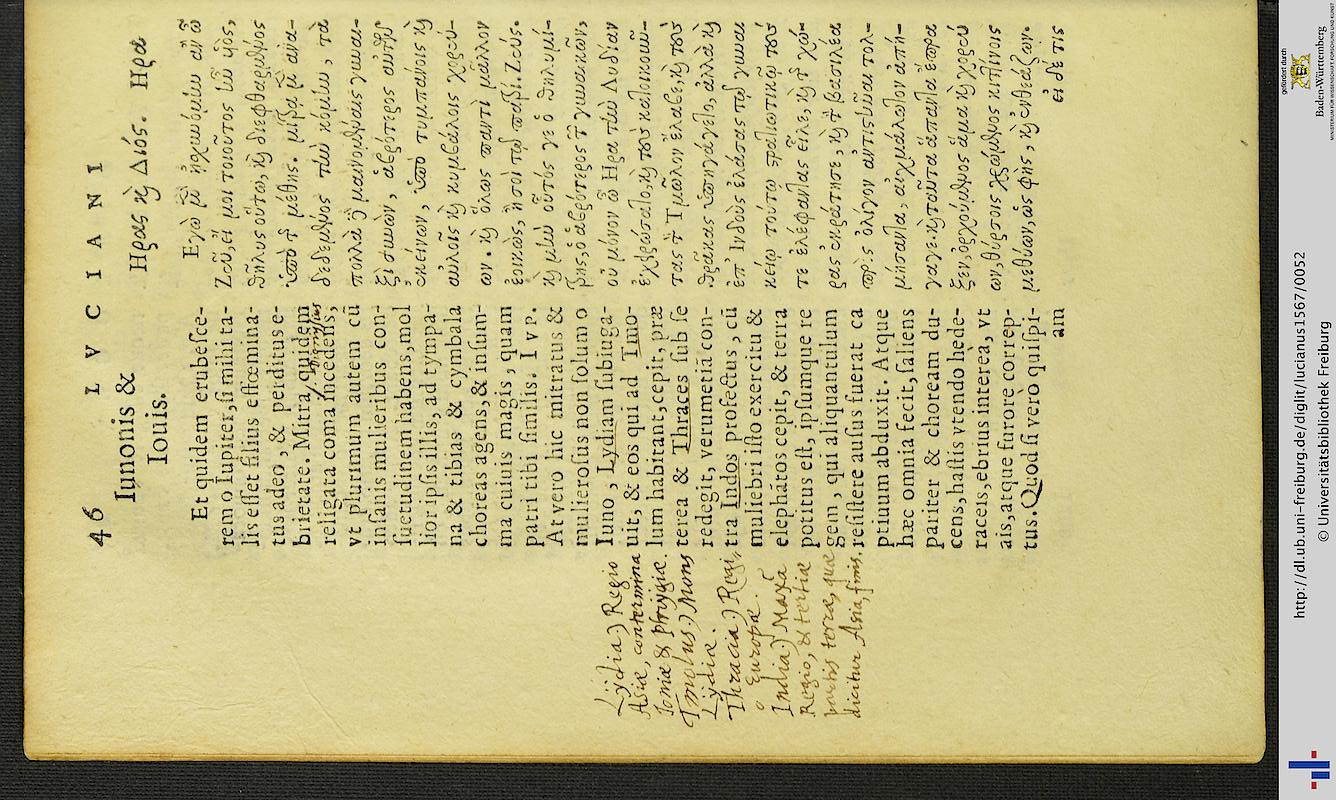 46
L V C I A N I
Iunonis &
Iouis.
Et quidem erubesce-
rem o Iupiter, si mihi ta-
lis esset filius effœmina-
tus adeo, & perditus e-
brietate. Mitra, quidem
religata coma incedens,
vt plurimum autem cũ
insanis mulieribus con-
suetudinem habens, mol
lior ipsis illis, ad tympa-
na & tibias & cymbala
choreas agens, & in sum-
ma cuiuis magis, quam
patri tibi similis. I v p.
At vero hic mitratus &
mulierosus non solum o
Iuno, Lydiam subiuga-
uit, & eos qui ad Tmo-
lum habitant, cepit, præ
terea & Thraces sub se
redegit, verumetiã con-
tra Indos profectus, cũ
muliebri isto exercitu &
elephãtos cepit, & terra
potitus est, ipsumque re
gem, qui aliquantulum
resistere ausus fuerat ca
ptiuum abduxit. Atque
hæc omnia fecit, saliens
pariter & choream du-
cens, hastis vtendo hede-
raceis, ebrius interea, vt
ais, atque furore correp-
tus. Quod si vero quispi-
am
Ηρας κὶ Διός. Ηρα
Εγὼ μὲν ᾐσχυνόμην ἂν ὦ
Ζεῦ, εἴ μοι τοιοῦτος ἦν υἱὸς,
θῆλυς οὕτω, κὶ διεφθαρμένος
ὑπὸ τῆς μέθης. μίτρᾳ μὲν ἀνα-
δεδεμένος τὴν κόμην, τὰ
πολλὰ δὲ μαινομέναις γυναι-
ξὶ συνὼν, ἁβρότερος αὐτῶν
ἐκείνων, ὑπὸ τυμπάνοις κὶ
αὐλοῖς κὶ κυμβάλοις χορεύ-
ων. κὶ ὅλως παντὶ μᾶλλον
ἐοικὼς, ἢ σοὶ τῷ πατρί. Ζεύς.
κὶ μὴν οὗτός γε ὁ θηλυμί-
τρης, ὁ ἁβρότερος τῶν γυναικῶν,
οὐ μόνον ὦ Ηρα τὴν Λυδίαν
ἐχειρώσατο, κὶ τοὺς κατοικοῦν-
τας τὸν Τμῶλον ἔλαβε, κὶ τοὺς
θρᾷκας ὑπηγάγετο, ἀλλὰ κὶ
ἐπ' Ινδοὺς ἐλάσας τῷ γυναι
κείῳ τούτῳ στρατιωτικῷ τούς
τε ἐλέφαντας εἷλε, κὶ τῆς χώ-
ρας ἐκράτησε, κὶ τὸν βασιλέα
πρὸς ὀλίγον ἀντιστῆναι τολ-
μήσαντα, αἰχμάλωτον ἀπή-
γαγε. κὶ ταῦτα ἅπαντα ἔπρα
ξεν, ὀρχούμενος ἅμα κὶ χορεύ
ων, θύρσοις χρώμενος κιττίνοις
μεθύων, ὡς φῂς, κὶ ἐνθεάζων.
εἰ δέ τις
Lydia) Regio
Asiæ, contermina
Ioniæ & phrygiæ.
Tmolus) Mons
Lydiæ.
Thracia) Regi,
o Europæ.
India) Maxã
Regio, & tertiæ
partis terræ, quæ
dicitur Asia, finis.
http://dl.ub.uni-freiburg.de/diglit/lucianus1567/0052
© Universitätsbibliothek Freiburg
gefördert durch
Baden-Württemberg
MINISTERIUM FÜR WISSENSCHAFT, FORSCHUNG UND KUNST